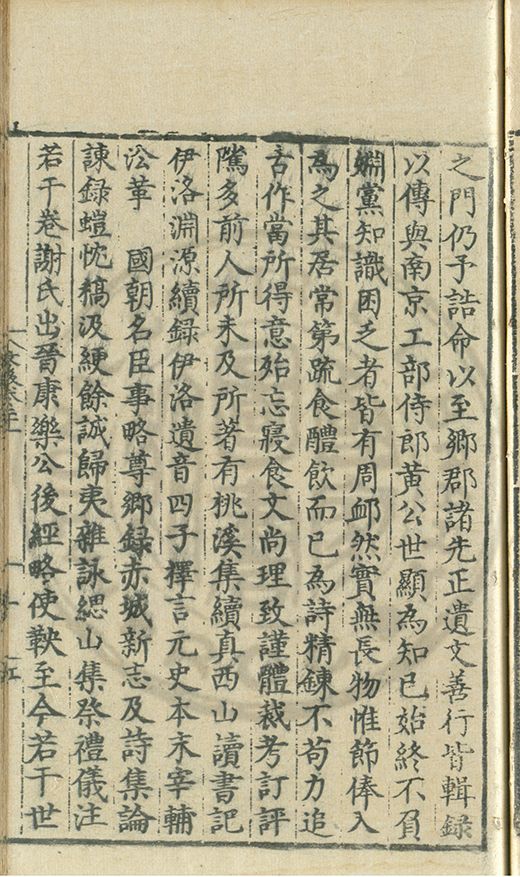 之門仍予誥命以至鄉郡諸先正遺文善行皆輯録
以傳與南京工部侍郎黃公世顯為知已始終不負
婣黨知識困乏者皆有周䘏然實無長物惟節俸入
為之其居常第疏食醴飲而已為詩精鍊不苟力追
古作當所得意殆忘寢食文尚理致謹體裁考訂評
隲多前人所未及所著有桃溪集續真西山讀書記
伊洛淵源續録伊洛遺音四子擇言元史本末宰輔
沿革　國朝名臣事略尊鄉録赤城新志及詩集論
諫録螘忱稿汲綆餘誠歸夷雜詠緦山集祭禮儀注
若干卷謝氏出晉康樂公後經略使鞅至今若干世